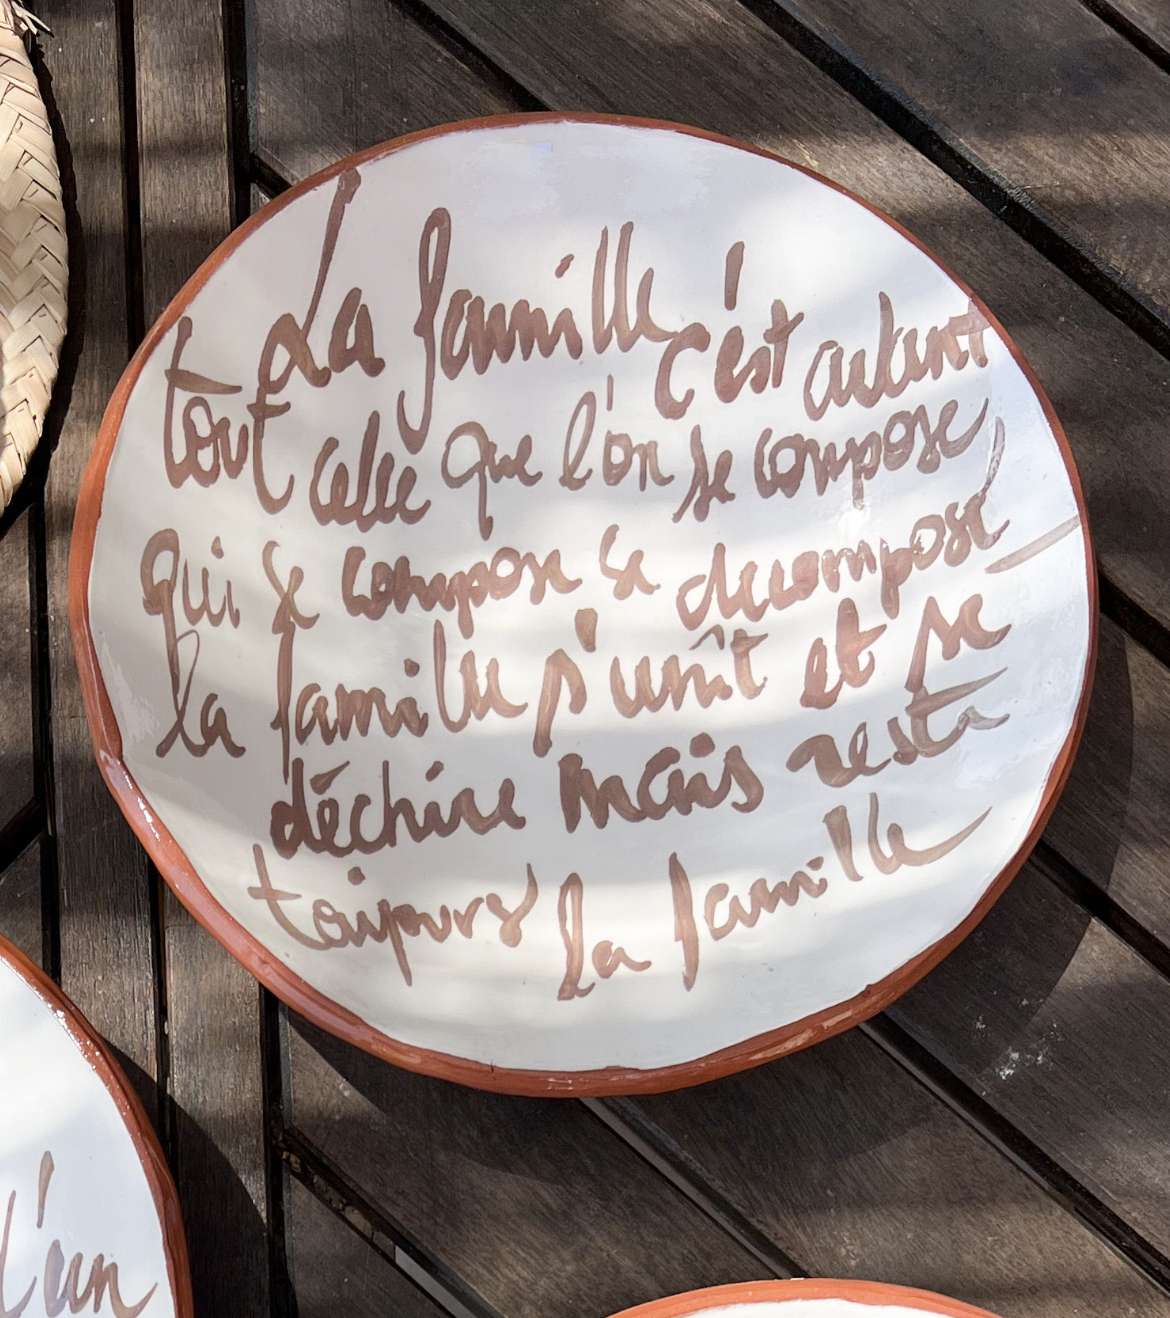 La famille c'est autant
tout celle que l'on se compose,
qui se compose se decompose
la famille s'unît et se
déchire mais reste
toujours la famille